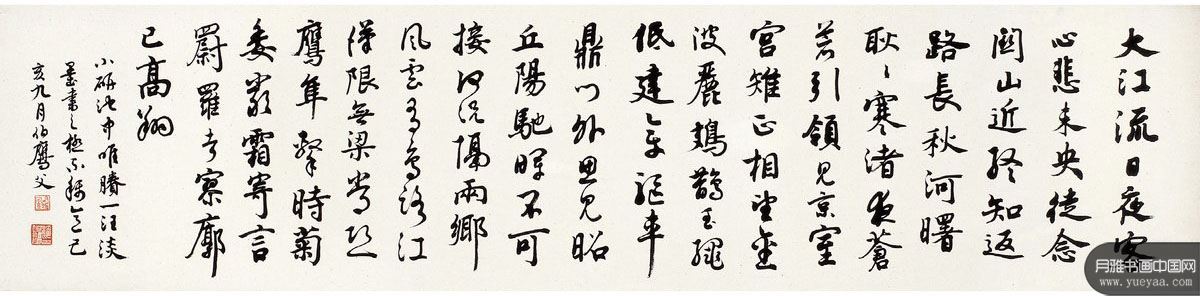 大江流日夜客
心悲未央徒念
關山近終知返
路長秋河曙
耿〻寒渚夜蒼
蒼引領見京室
宮雉正相望金
波麗鳷鵲玉繩
低建章驅車
鼎門外思見昭
丘陽馳暉不可
接何況隔兩鄉
風雲有鳥路江
漢限無梁常恐
鷹隼擊時菊
委嚴霜寄言
罻羅者寥廓
已高翔
小硏池中唯賸一汪淡
墨書之極不稱意己
亥九月伯鷹父
月雅书画中国网
www.yueyaa.com